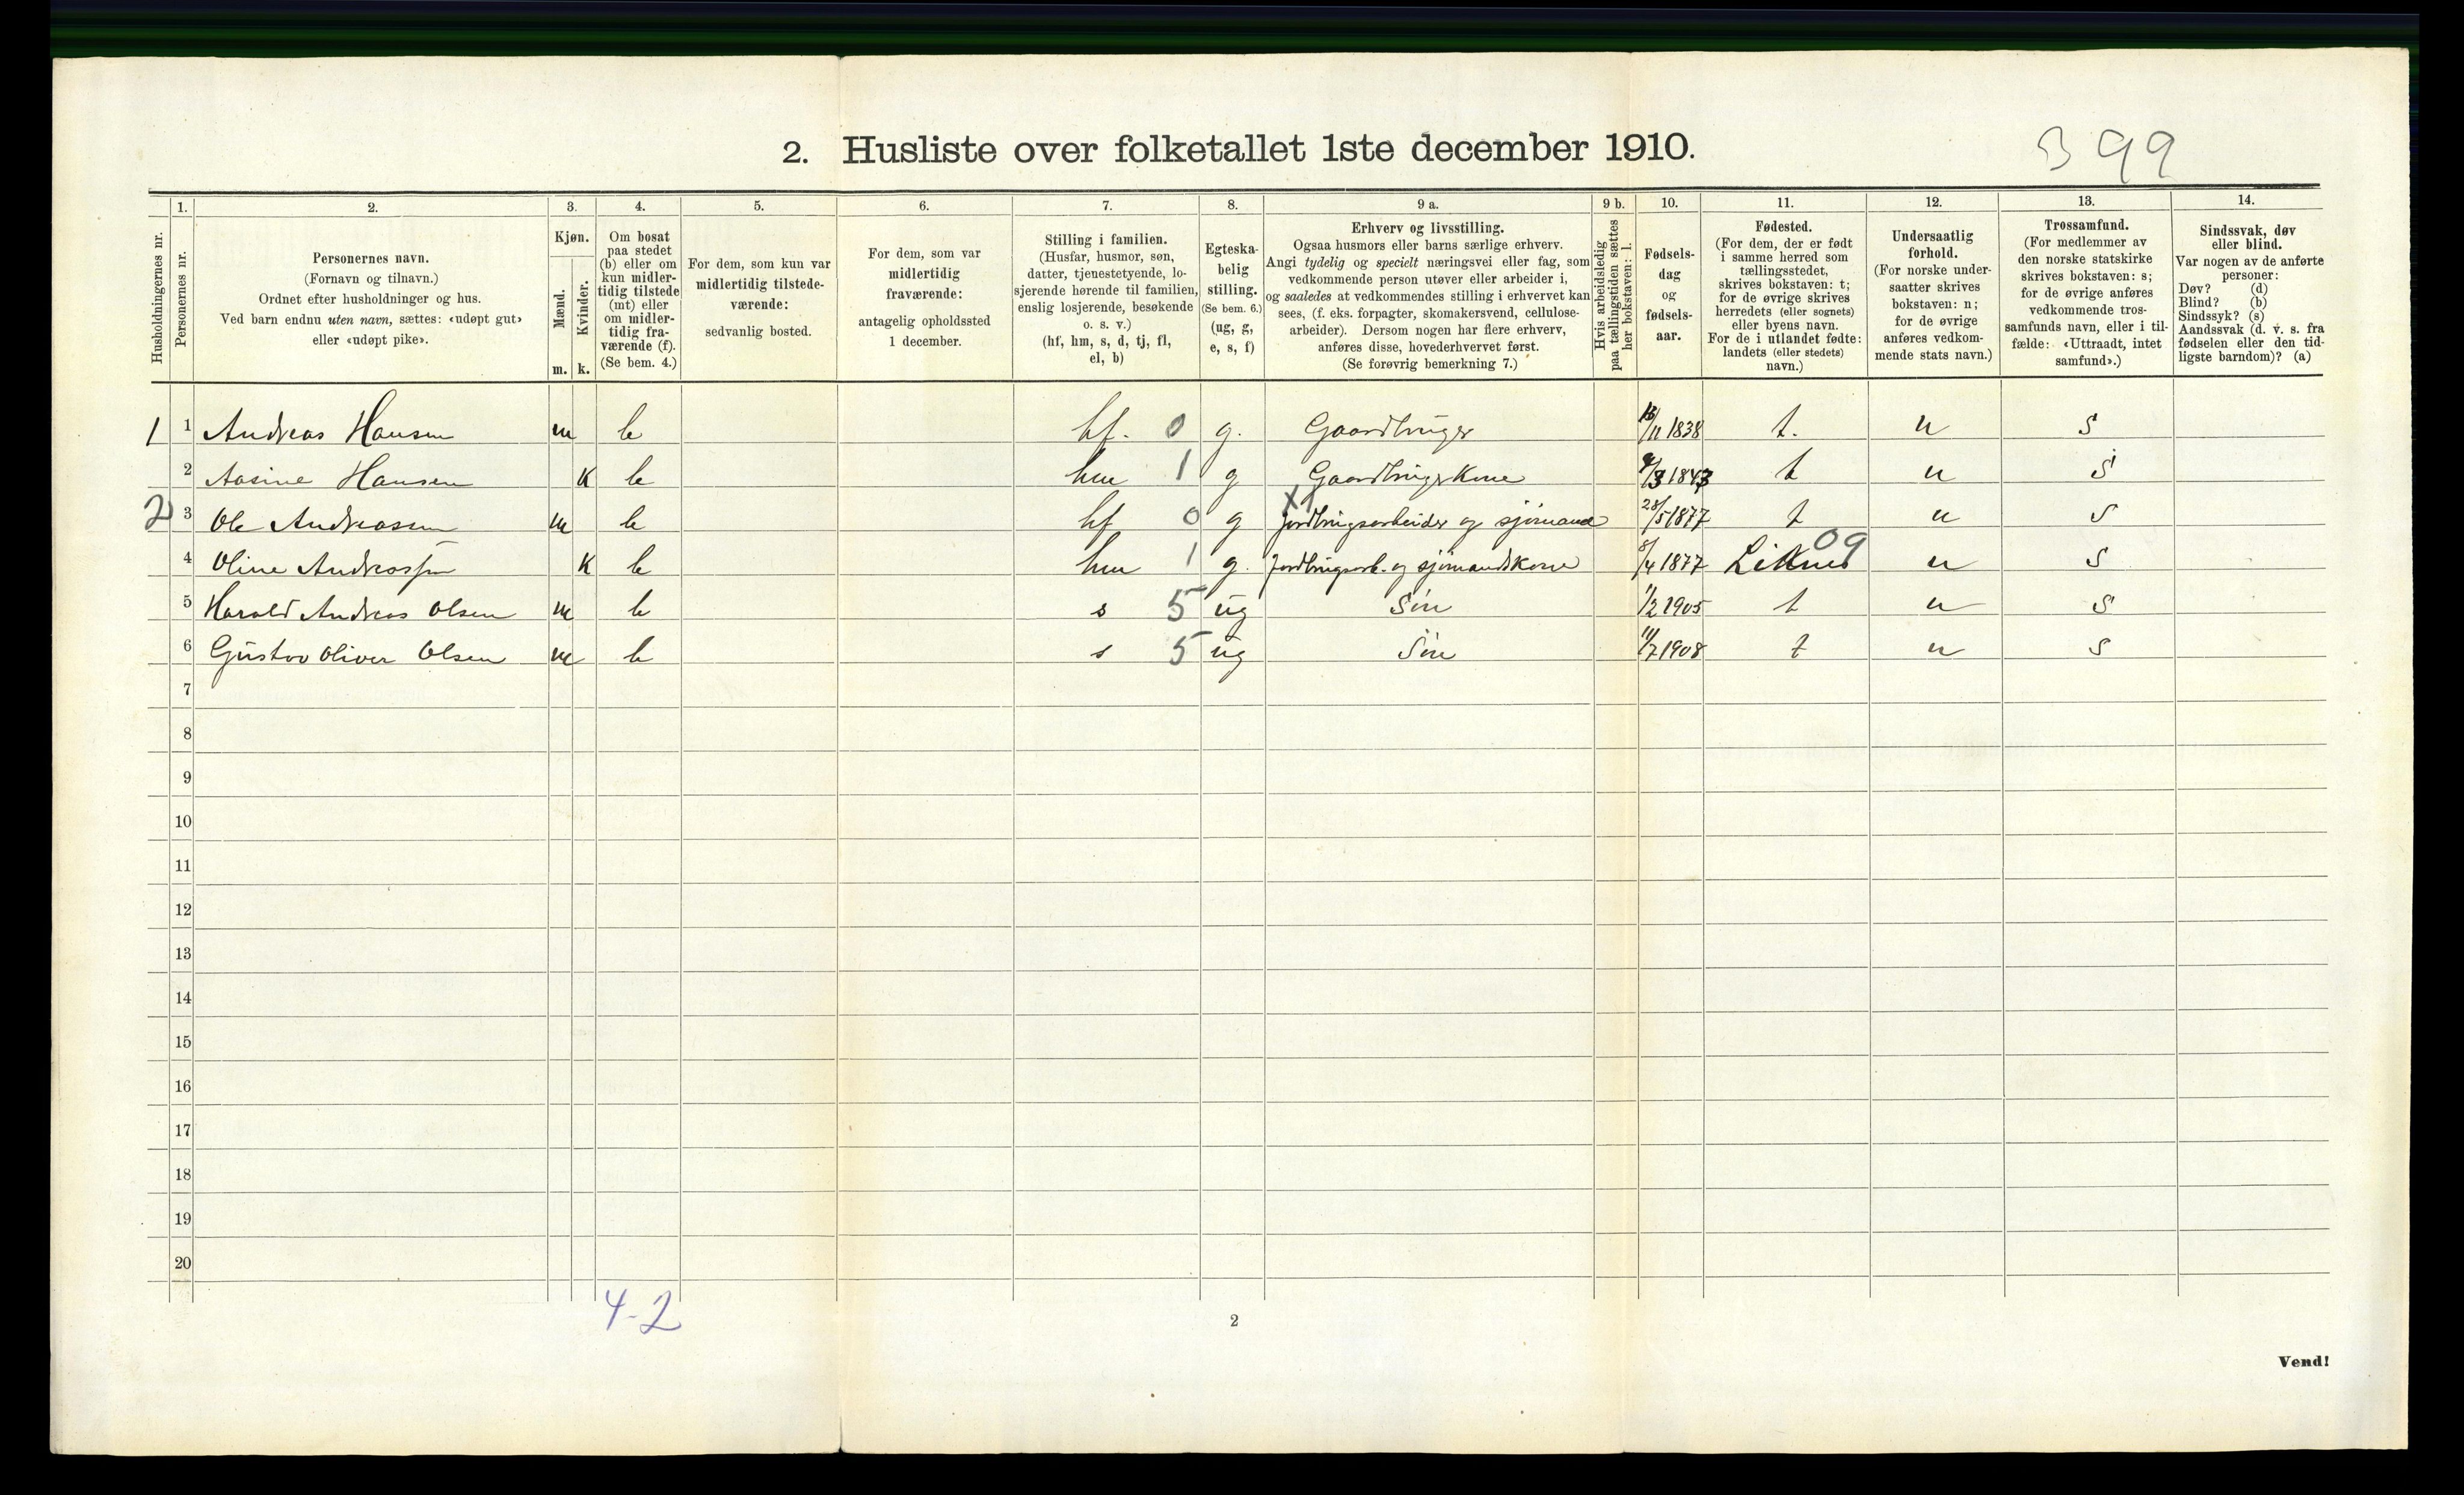 2. Husliste over folketallet 1ste december 1910.
399
Husholdningernes nr.
1.
Personernes nr.
2.
Personernes navn.
(Fornavn og tilnavn.)
Ordnet efter husholdninger og hus.
Ved barn endnu uten navn, sættes: «udøpt gut»
eller «udøpt pike».
3.
Kjøn.
Mænd.
Kvinder.
m. k.
4.
Om bosat
paa stedet
(b) eller om
kun midler-
tidig tilstede
(mt) eller
om midler-
tidig fra-
værende (f).
(Se bem. 4.)
5.
For dem, som kun var
midlertidig tilstede-
værende:
sedvanlig bosted.
6.
For dem, som var
midlertidig
fraværende:
antagelig opholdssted
1 december.
7.
Stilling i familien.
(Husfar, husmor, søn,
datter, tjenestetyende, lo-
sjerende hørende til familien,
enslig losjerende, besøkende
o. s. v.)
(hf, hm, s, d, tj, fl,
el, b)
8.
Egteska-
belig
stilling.
(Se bem. 6.)
(ug, g,
e, s, f)
9 a.
Erhverv og livsstilling.
Ogsaa husmors eller barns særlige erhverv.
Angi tydelig og specielt næringsvei eller fag, som
vedkommende person utøver eller arbeider i,
og saaledes at vedkommendes stilling i erhvervet kan
sees, (f. eks. forpagter, skomakersvend, cellulose-
arbeider). Dersom nogen har flere erhverv,
anføres disse, hovederhvervet først.
(Se forøvrig bemerkning 7.)
9 b.
Hvis arbeidsledig
paa tællingstiden sættes
her bokstaven: l.
10.
Fødsels-
dag
og
fødsels-
aar.
11.
Fødested.
(For dem, der er født
i samme herred som
tællingsstedet,
skrives bokstaven: t;
for de øvrige skrives
herredets (eller sognets)
eller byens navn.
For de i utlandet fødte:
landets (eller stedets)
navn.)
12.
Undersaatlig
forhold.
(For norske under-
saatter skrives
bokstaven: n;
for de øvrige
anføres vedkom-
mende stats navn.)
13.
Trossamfund.
(For medlemmer av
den norske statskirke
skrives bokstaven: s;
for de øvrige anføres
vedkommende tros-
samfunds navn, eller i til-
fælde: «Uttraadt, intet
samfund».)
14.
Sindssvak, døv
eller blind.
Var nogen av de anførte
personer:
Døv? (d)
Blind? (b)
Sindssyk? (s)
Aandssvak (d. v. s. fra
fødselen eller den tid-
ligste barndom)? (a)
1 1 Andreas Hansen m b hf. 0 g. Gaardbruger 1838 t. n S
2 Aasine Hansen K b hm 1 g Gaardbrugerkone t n S
2 3 Ole Andreasen m b hf 0 g X1 Jordbrugsarbeider og sjømand 28/5 1877 t n S
4 Oline Andreassen K b hm 1 g. Jordbrugsarb. og sjømandskone 8/4 1877 Liknes 09 n S
5 Harald Andreas Olsen m b s 5 ug Søn 1/2 1905 t n S
6 Gustav Oliver Olsen m b s 5 ug Søn 11/7 1908 t n S
7
8
9
10
11
12
13
14
15
16
17
18
19
20
4-2
2
Vend!